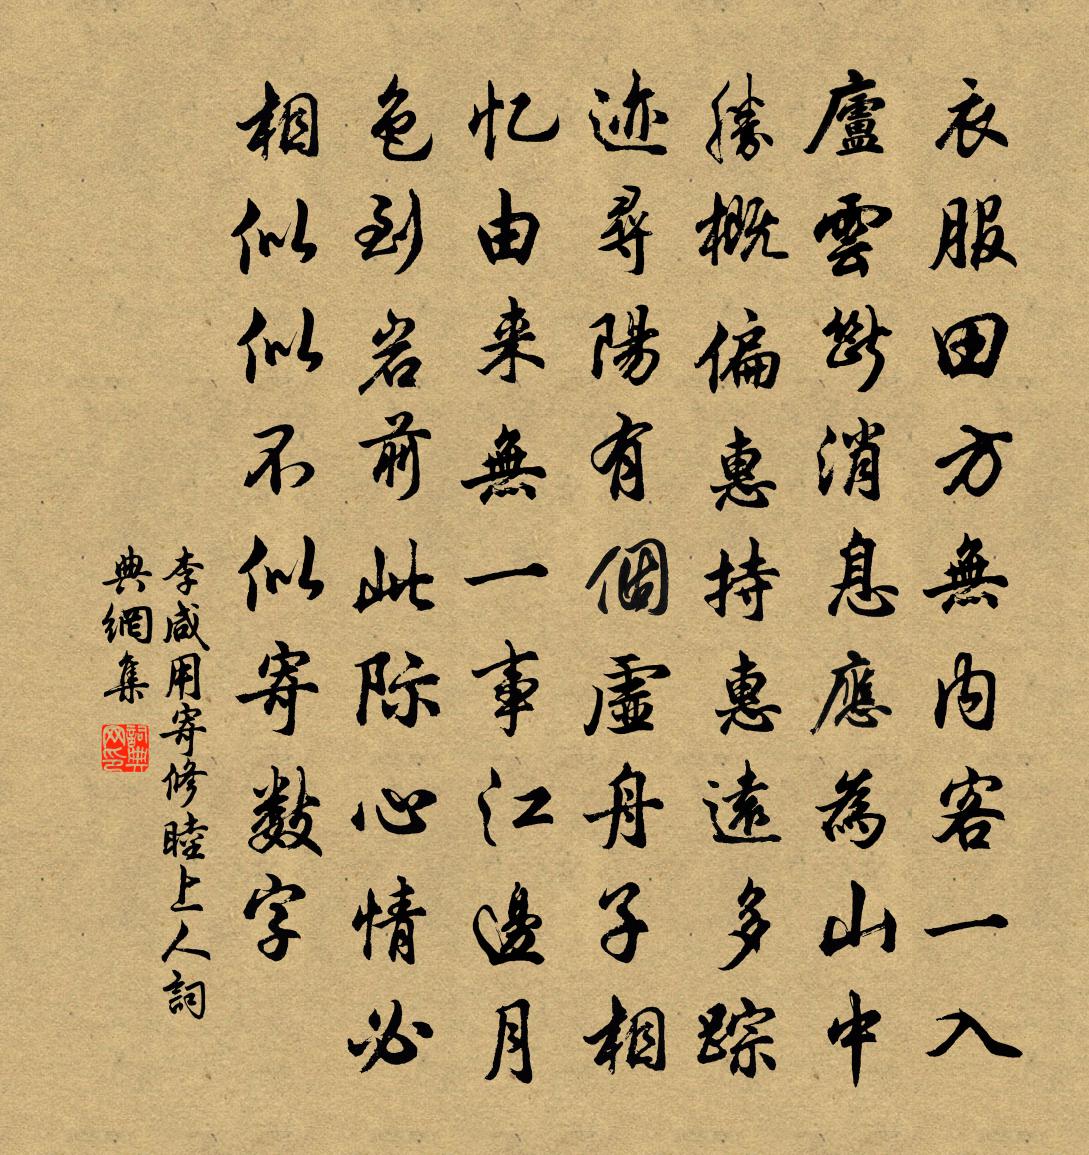 衣服田方無内客一入
廬雲斷消息應為山中
勝概偏惠持惠遠多踪
迹尋陽有個虛舟子相
忆由来無一事江邊月
色到岩前此际心情必
相似似不似寄数字
李咸用寄修睦上人詞
典網集
詞典网印